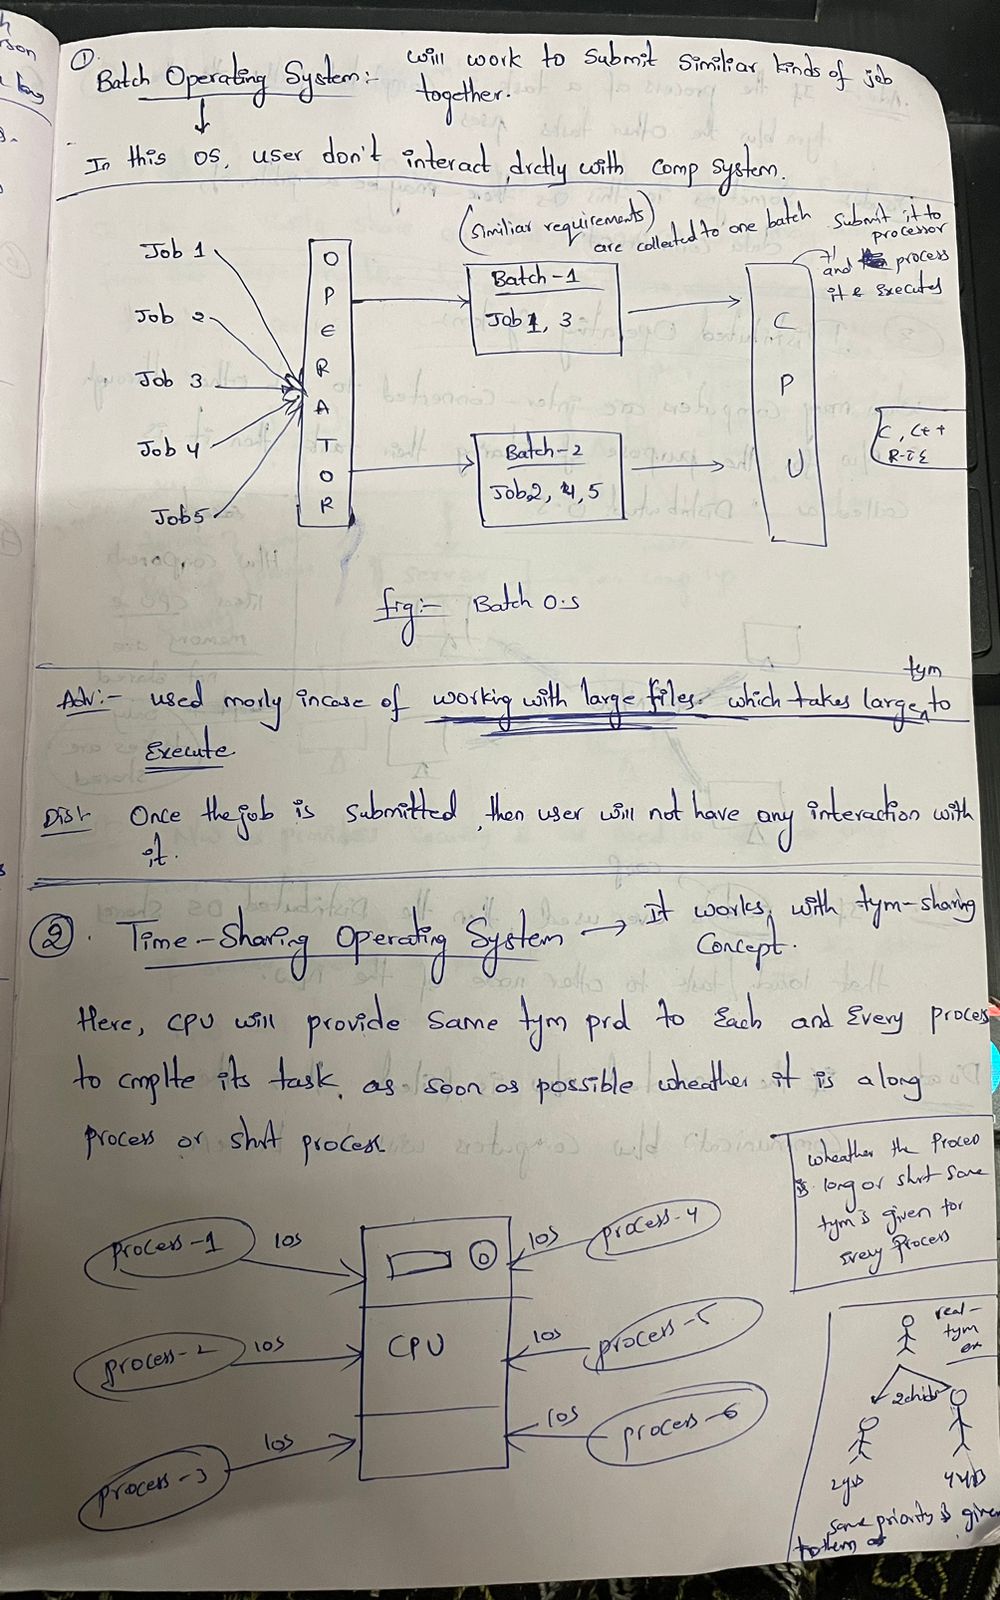 ①
Batch Operating System:- will work to submit similiar kinds of job
together.
In this OS, user don't interact drctly with comp system.
(Similiar requirements)
are collected to one batch
submit it to
processor
and process
it & Executes
Job 1
Job 2
Job 3
Job 4
Job 5
OPERATOR
Batch-1
Job 1, 3
Batch-2
Job 2, 4, 5
CPU
C, C++
fig:- Batch O.S
tym
Adv:- used morly incase of working with large files. which takes large to
Execute
Once the job is submitted, then user will not have any interaction with
it.
②. Time-Sharing Operating System → It works with tym-sharing
Concept.
Here, CPU will provide same tym prd to Each and Every process
to cmplte its task as soon as possible wheather it is a long
process or shrt process
wheather the Process
is long or shrt same
tym is given for
Every Process
process-1 10s
process-2 10s
process-3 10s
CPU
10s process-4
10s process-5
10s process-6
real-
tym
ex
2 childs
2yrs
4yrs
same priority is given
to them